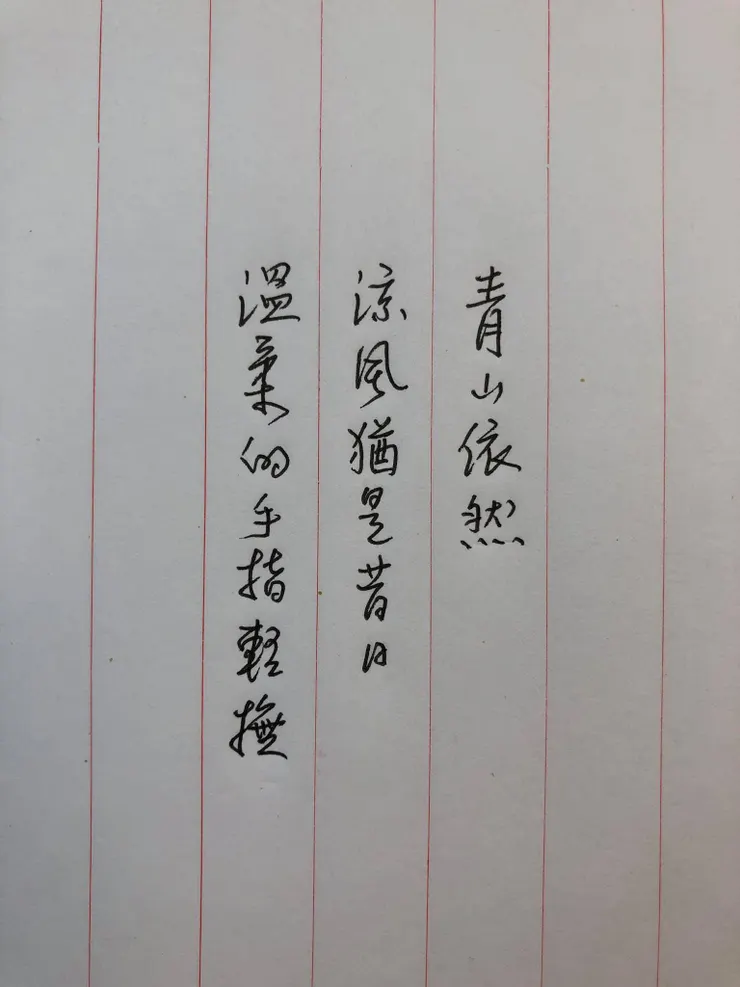 青山依然
涼風猶是昔日
溫柔的手指輕撫